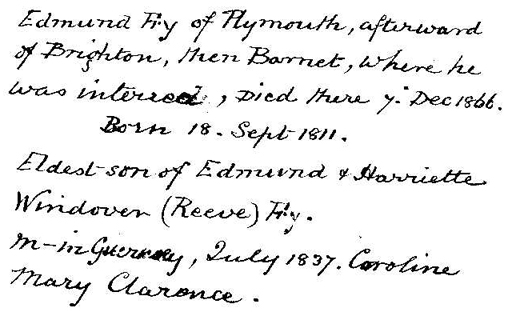 Edmund Fry of Plymouth, afterward
of Brighton, then Barnet, where he
was interred, Died there 7. Dec 1866.
Born 18. Sept 1811.
Eldest son of Edmund & Harriette
Windover (Reeve) Fry.
m-in Guernsey, July 1837. Caroline
Mary Clarence.